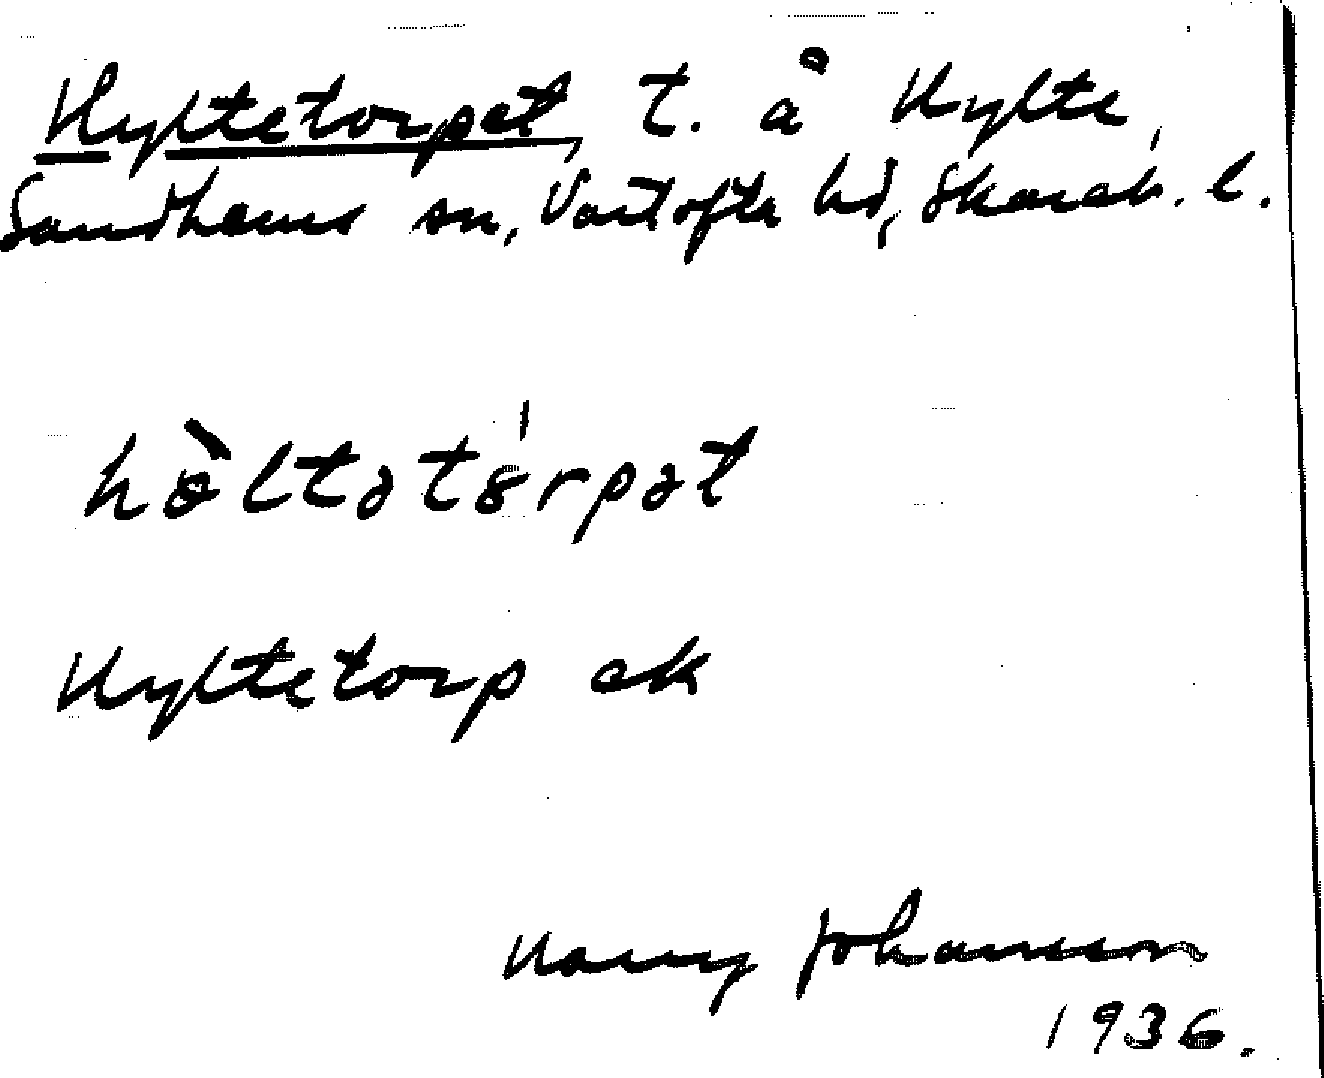 Hyltetorpet, t. å Hylte,
Sandhems sn, Vartofta hd, Skarab. l.
hø̀ltətɤ́rpət
Hyltetorp ek
Harry Johansson
1936.